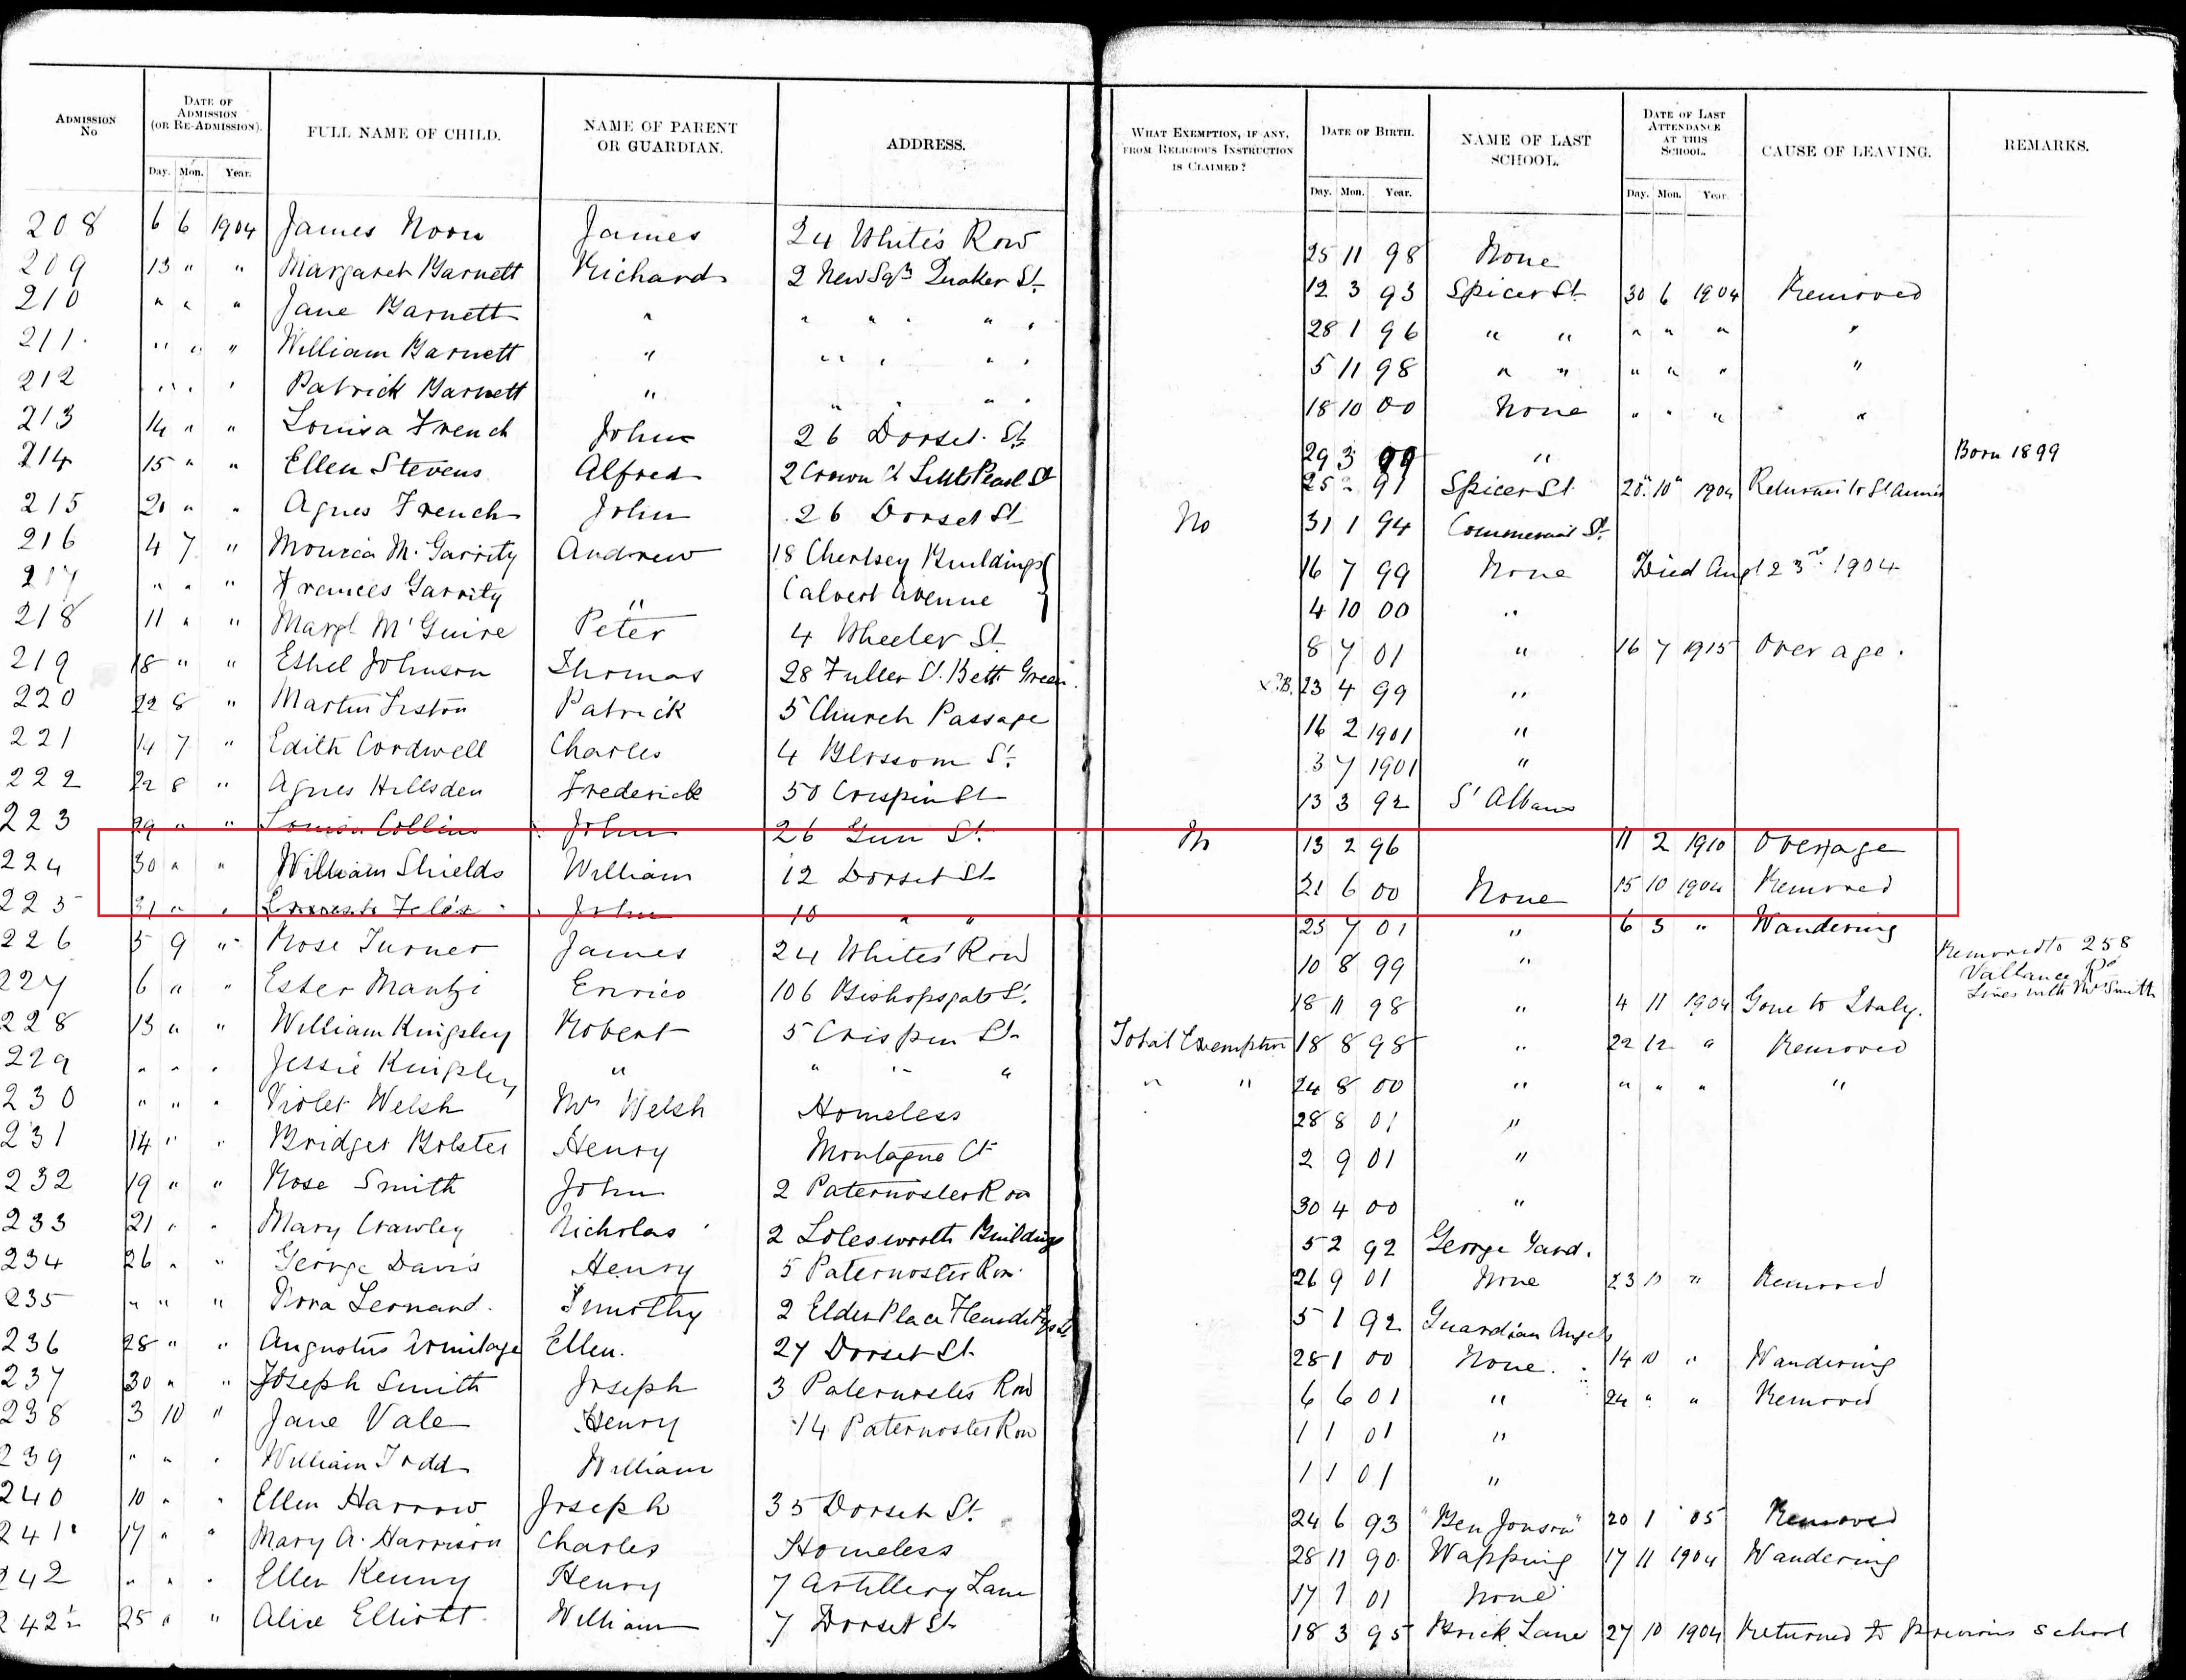 ADMISSION No | DATE OF ADMISSION (OR RE-ADMISSION). Day. Mon. Year. | FULL NAME OF CHILD. | NAME OF PARENT OR GUARDIAN. | ADDRESS. | WHAT EXEMPTION, IF ANY, FROM RELIGIOUS INSTRUCTION IS CLAIMED? | DATE OF BIRTH. Day. Mon. Year. | NAME OF LAST SCHOOL. | DATE OF LAST ATTENDANCE AT THIS SCHOOL. Day. Mon. Year. | CAUSE OF LEAVING. | REMARKS.
208 6 6 1904 James Noon James 24 White's Row 25 11 98 None
209 13 " " Margaret Barnett Richard 2 New Sqre Quaker St 12 3 93 Spicer St 30 6 1904 Removed
210 " " " Jane Barnett " " " " " " 28 1 96 " " " " " "
211 " " " William Barnett " " " " " " 5 11 98 " " " " " "
212 " " " Patrick Barnett " " " " " 18 10 00 None " " " "
213 14 " " Louisa French John 26 Dorset St 29 3 99 " Born 1899
214 15 " " Ellen Stevens Alfred 2 Crown Ct Little Pearl St 25 2 91 Spicer St 28" 10" 1904 Returned to St Annes
215 20 " " Agnes French John 26 Dorset St No 31 1 94 Commercial St.
216 4 7 " Monica M. Garrity Andrew 18 Chertsey Buildings 16 7 99 None Died Augt 23rd 1904
217 " " " Frances Garrity " Calvert Avenue 4 10 00 "
218 11 " " Margt McGuire Peter 4 Wheeler St 8 7 01 " 16 7 1915 Over age.
219 18 " " Ethel Johnson Thomas 28 Fuller St. Beth Green. 23 4 99 "
220 22 8 " Martin Liston Patrick 5 Church Passage 16 2 1901 "
221 14 7 " Edith Cordwell Charles 4 Blossom St. 3 7 1901 "
222 22 8 " Agnes Hillsden Frederick 50 Crispin St 13 3 92 St Albans
223 29 " " Louisa Collins John 26 Gun St. No 13 2 96 11 2 1910 Overage
224 30 " " William Shields William 12 Dorset St 21 6 00 None 15 10 1904 Removed
225 31 " " John 10 " " 23 7 01 " 6 3 " Wandering
226 5 9 " Rose Turner James 24 White's Row 10 8 99 " Removed to 258 Vallance Rd Lives with Mrs Smith
227 6 " " Ester Mantzi Enrico 106 Bishopsgate St. 18 11 98 " 4 11 1904 Gone to Italy.
228 13 " " William Kingsley Robert 5 Crispin St Total Exemption 18 8 98 " 22 12 " Removed
229 " " " Jessie Kingsley " " " " " " 24 8 00 " " " " "
230 " " " Violet Welsh Mrs Welsh Homeless 28 8 01 "
231 14 " " Bridget Bolster Henry Montague Ct 2 9 01 "
232 19 " " Rose Smith John 2 Paternoster Row 30 4 00 "
233 21 " " Mary Crawley Nicholas 2 Lolesworth Buildings 5 2 92 George Yard.
234 26 " " George Davis Henry 5 Paternoster Row 26 9 01 None 23 10 " Removed
235 " " " Nora Leonard. Timothy 2 Elder Place 5 1 92 Guardian Angels
236 28 " " Augustus Armitage Ellen. 27 Dorset St 28 1 00 None. 14 10 " Wandering
237 30 " " Joseph Smith Joseph 3 Paternoster Row 6 6 01 " 24 " " Removed
238 3 10 " Jane Vale Henry 14 Paternoster Row 1 1 01 "
239 " " " William Todd William 1 1 01 "
240 10 " " Ellen Harrow Joseph 35 Dorset St. 24 6 93 "Ben Jonson" 20 1 05 Removed
241 17 " " Mary A. Harrison Charles Homeless 28 11 90 Wapping 17 11 1904 Wandering
242 " " " Ellen Kenny Henry 7 Artillery Lane 17 7 01 None
242½ 25 " " Alice Elliott William 7 Dorset St 18 3 95 Brick Lane 27 10 1904 Returned to previous school